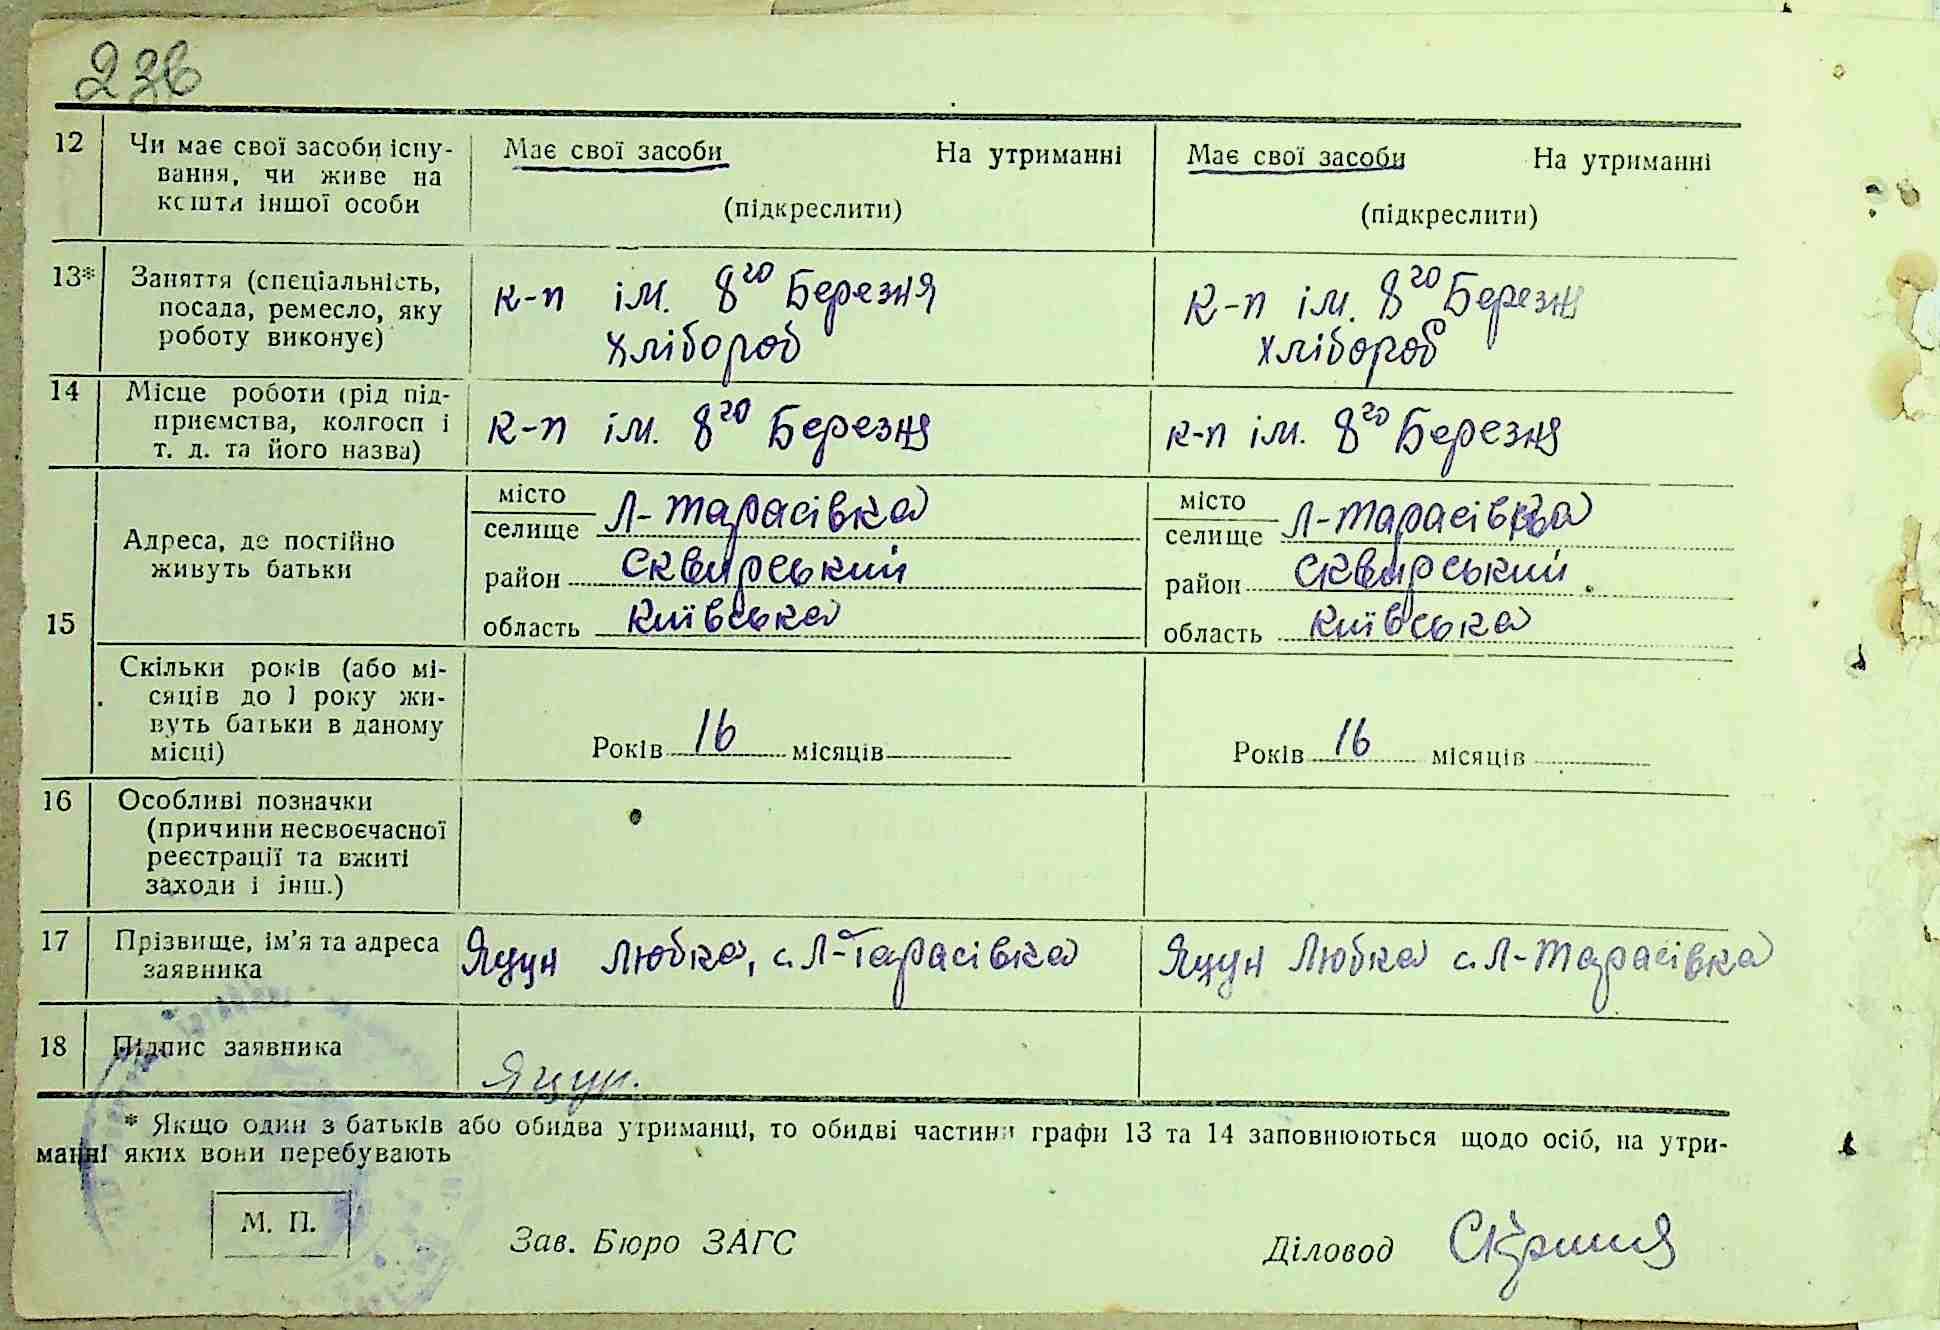 236
12 Чи має свої засоби існу- Має свої засоби На утриманні Має свої засоби На утриманні
вання, чи живе на
кошти іншої особи (підкреслити) (підкреслити)
13* Заняття (спеціальність, к-п ім. 8го Березня к-п ім. 8го Березня
посада, ремесло, яку
роботу виконує) хлібороб хлібороб
14 Місце роботи (рід під-
приємства, колгосп і к-п ім. 8го Березня к-п ім. 8го Березня
т. д. та його назва)
місто місто
селище Л-Тарасівка селище Л-Тарасівка
Адреса, де постійно
живуть батьки
район Сквирський район Сквирський
15 область Київська область Київська
Скільки років (або мі-
сяців до 1 року жи-
вуть батьки в даному
місці) Років 16 місяців Років 16 місяців
16 Особливі позначки
(причини несвоєчасної
реєстрації та вжиті
заходи і інш.)
17 Прізвище, ім'я та адреса Яцун Любка, с. Л-Тарасівка Яцун Любка с. Л-Тарасівка
заявника
18 Підпис заявника Яцун.
* Якщо один з батьків або обидва утриманці, то обидві частини графи 13 та 14 заповнюються щодо осіб, на утри-
манні яких вони перебувають
М. П. Зав. Бюро ЗАГС Діловод